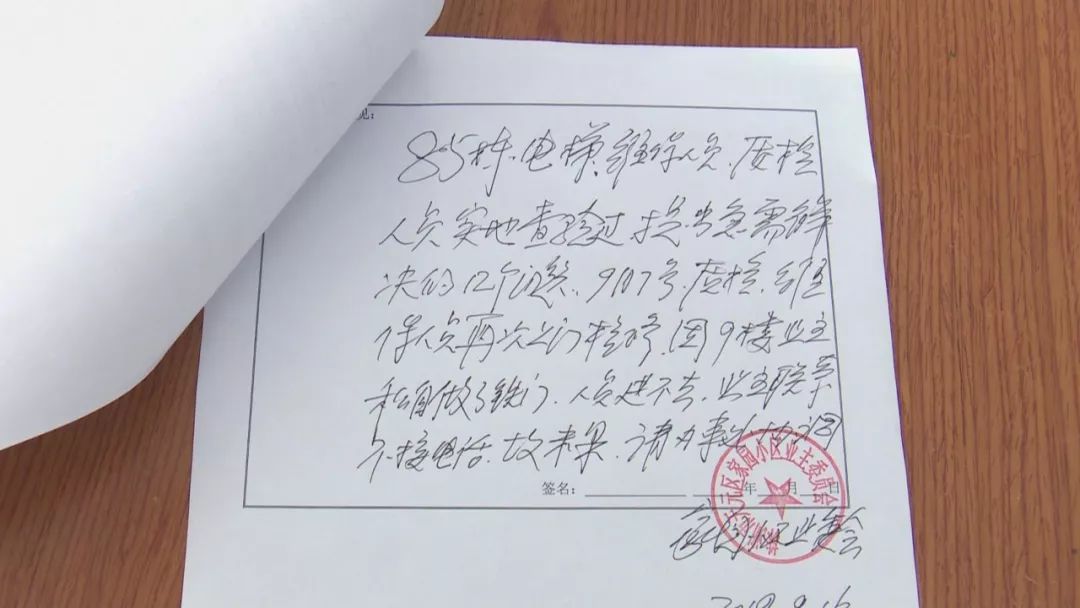 见：
85栋电梯、维保人员、质检
人员实地查验过，提出急需解
决的12个问题，9月7号，质检、维
保人员再次上门检修，因9楼业主
私自做了铁门，人员进不去，业主联系
不接电话，故未果，请办事处协调
签名： 年 月 日
元区家园小区业主委员会
家园小区业委会